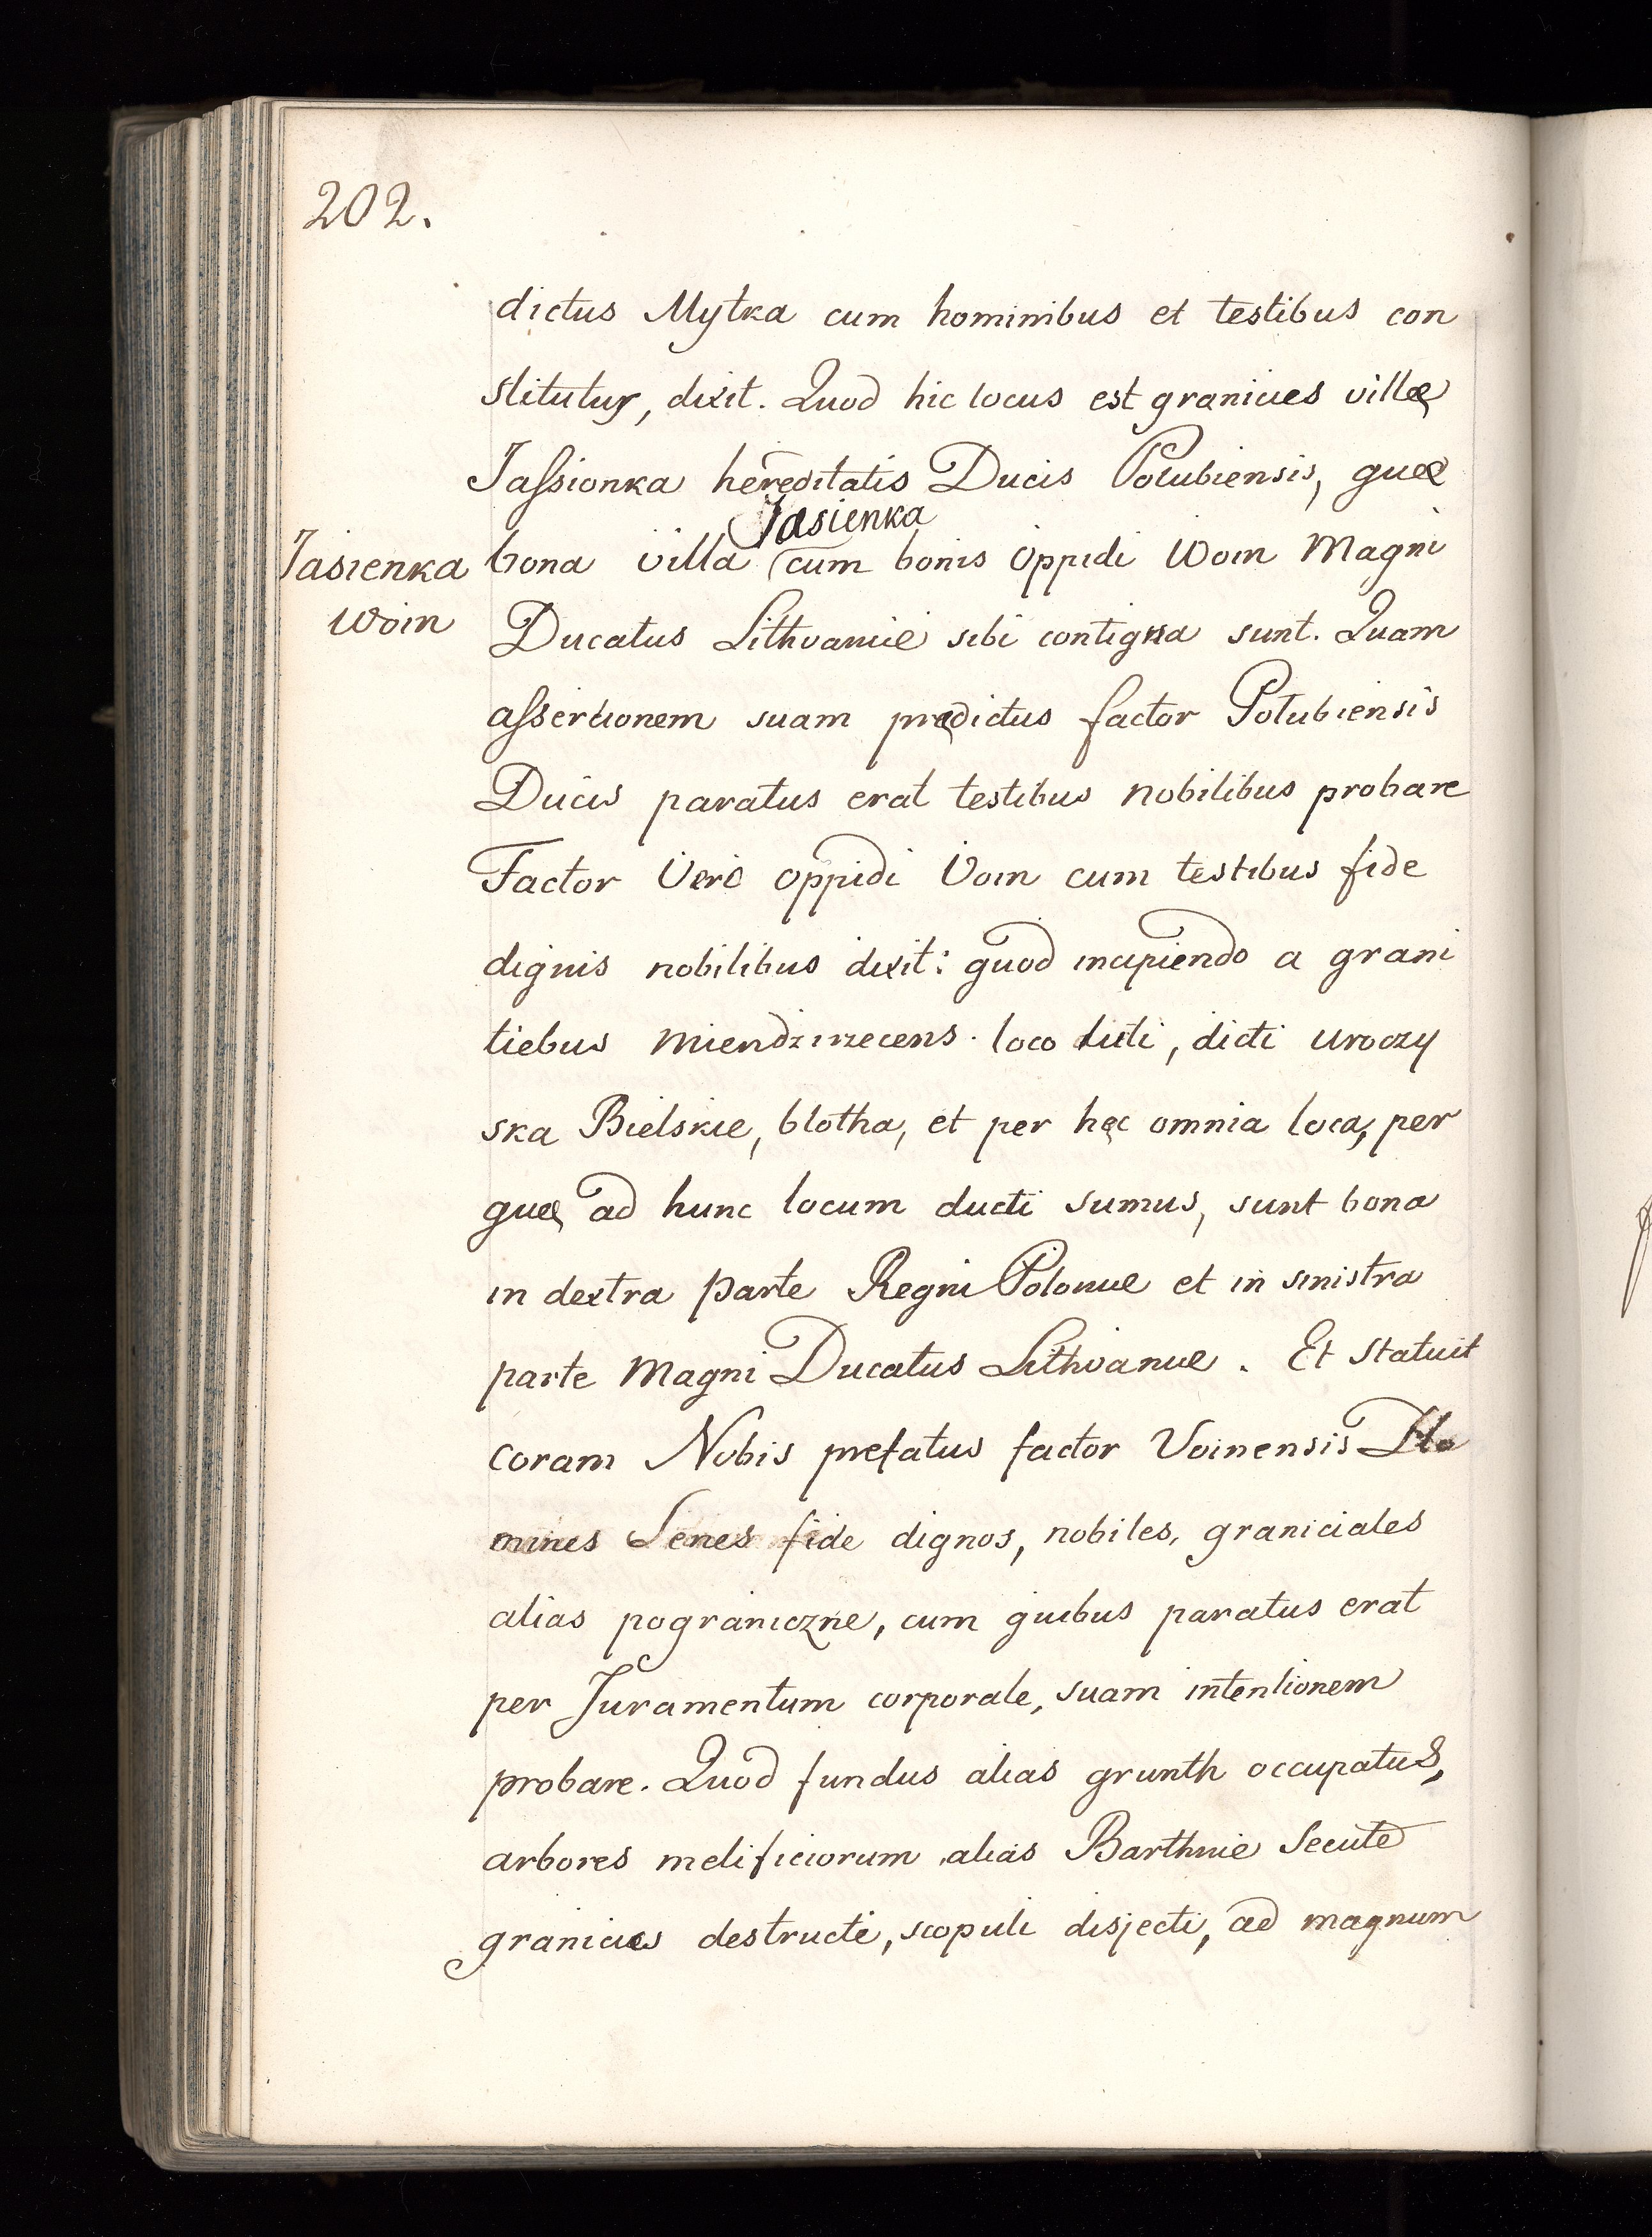 202.
dictus Mytka cum hominibus et testibus con
stitutus, dixit. Quod hic locus est granicies villæ
Jassionka hereditatis Ducis Polubiensis, quæ
Jasienka
Jasienka bona villa cum bonis oppidi Woin Magni
Woin Ducatus Lithvaniæ sibi contigua sunt. Quam
assertionem suam prædictus factor Polubiensis
Ducis paratus erat testibus nobilibus probare
Factor Vero oppidi Voin cum testibus fide
dignis nobilibus dixit: quod incipiendo a grani
tiebus miendzirzecens. loco luti, dicti uroczy
ska Bielskie, blotha, et per hęc omnia loca, per
quæ ad hunc locum ducti sumus, sunt bona
in dextra parte Regni Poloniæ et in sinistra
parte Magni Ducatus Lithvaniæ. Et statuit
coram Nobis prefatus factor Voinensis Ho
mines Senes fide dignos, nobiles, graniciales
alias pograniczne, cum quibus paratus erat
per Juramentum corporale, suam intentionem
probare. Quod fundus alias grunth occupatus,
arbores melificiorum alias Barthnie Secute
granicies destructe, scopuli disjecti, ad magnum